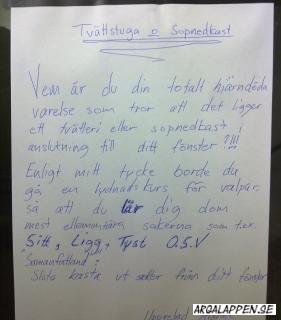 Tvättstuga o Sopnedkast
Vem är du din totalt hjärndöda
varelse som tror att det ligger
ett tvätteri eller sopnedkast i
anslutning till ditt fönster?!!!
Enligt mitt tycke borde du
gå en lydnadskurs för valpar,
så att du lär dig dem
mest ellementära sakerna som t.ex.
Sitt, Ligg, Tyst O.S.V
"Sammanfattand":
Sluta kasta ut saker från ditt fönster
ARGALAPPEN.SE